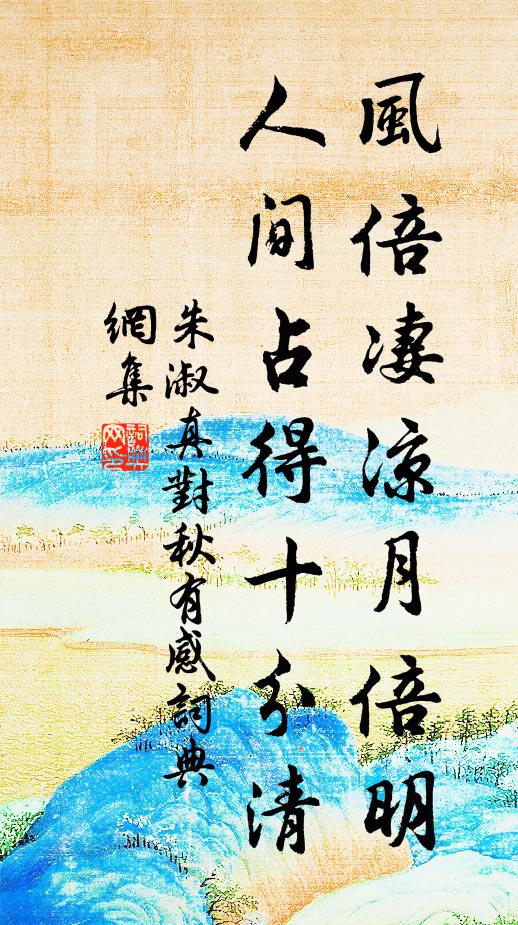 風倍凄涼月倍明
人間占得十分清
朱淑真對秋有感詞典
網集